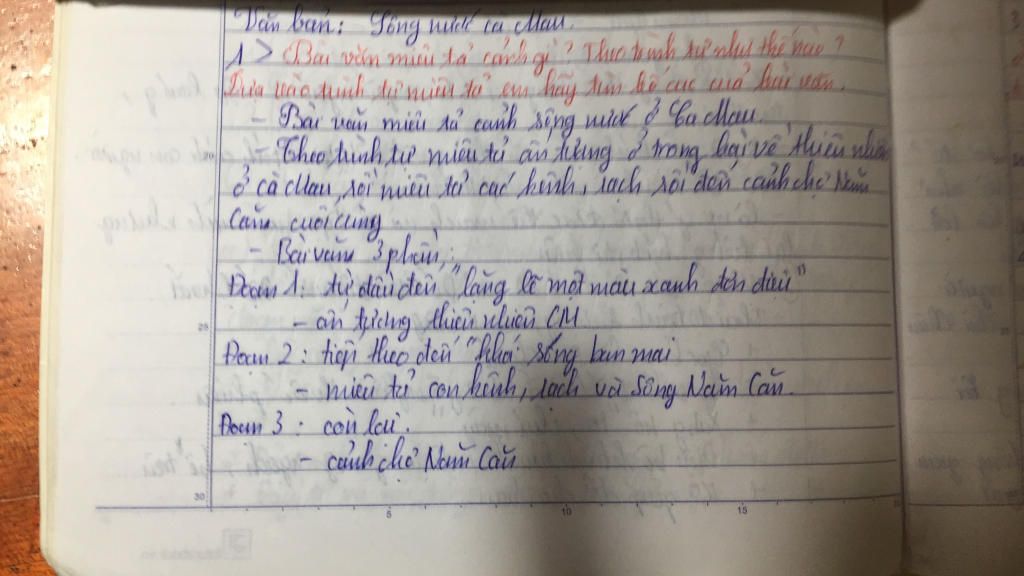 Văn bản: Sông nước cà Mau.
1> Bài văn miêu tả cảnh gì? Theo trình tự như thế nào?
Dựa vào trình tự miêu tả em hãy tìm bố cục của bài văn.
- Bài văn miêu tả cảnh sông nước ở Cà Mau.
- Theo trình tự miêu tả ấn tượng ở trong về thiên nhiên
ở cà Mau, rồi miêu tả các kênh, rạch rồi đến cảnh chợ Năm
Căn cuối cùng
- Bài văn 3 phần:
Đoạn 1: từ đầu đến "lặng lẽ một màu xanh đơn điệu"
- ấn tượng thiên nhiên CM
Đoạn 2: tiếp theo đến "khói sóng ban mai
- miêu tả con kênh, rạch và Sông Năm Căn.
Đoạn 3: còn lại.
- cảnh chợ Năm Căn
25
30
5
10
15